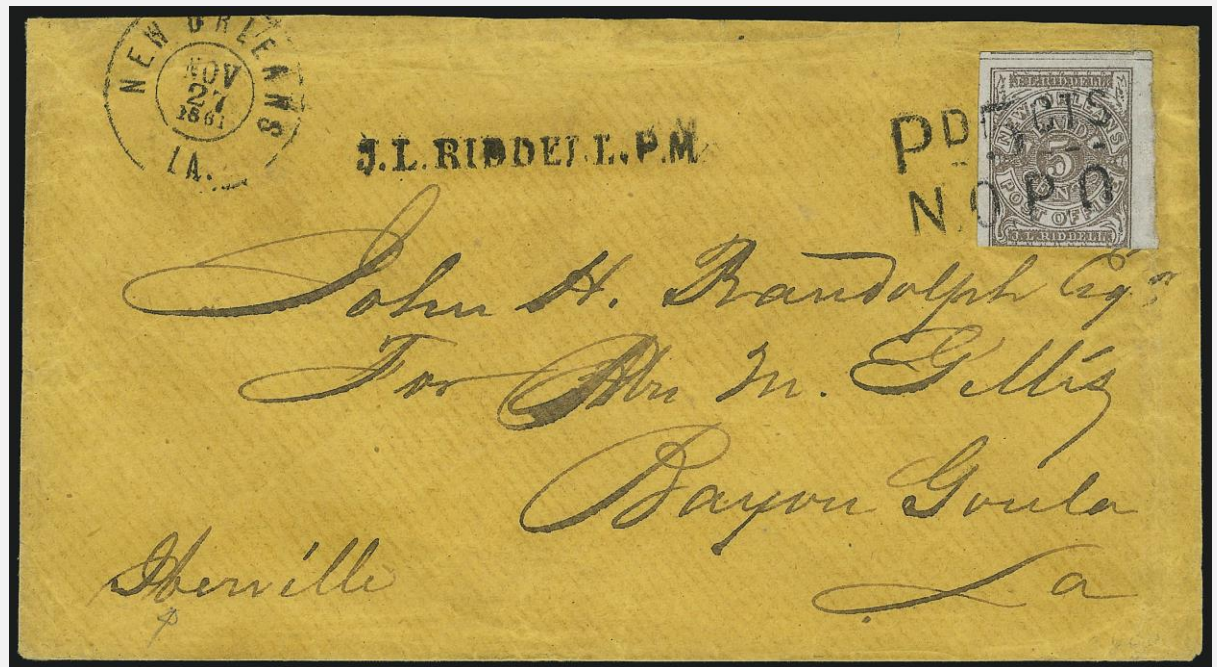 NEW ORLEANS
NOV
27
1861
LA.
J.L. RIDDELL. P.M.
PD 5 CTS
N.O.P.O
J.L. RIDDELL
NEW ORLEANS
5
CENTS
POST OFFICE
J.L. RIDDELL
John H. Randolph Esqr
For Mr M. Gillis
Bayou Goula
Iberville
La